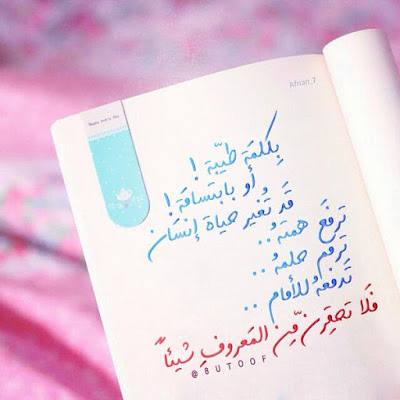 Afnan.7
بِكلمَة طيّبة !
أو بابتسَامَة !
قَد تُغير حياة إنسَان
ترفَع همتهُ..
ترمّم حلمهُ..
تَدفعهُ للأمام ..
فَلا تحقِرن مِّن المَعروفِ شيئاً
@BUTOOF